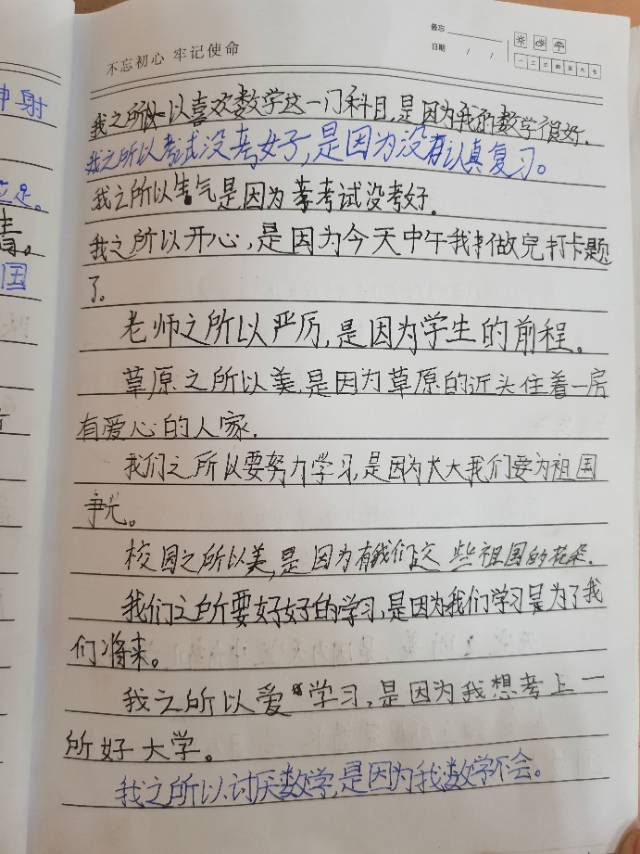 不忘初心 牢记使命
备忘
日期 / /
一 二 三 四 五 六 日
申射
立足。
青。
国
我之所以喜欢数学这一门科目,是因为我的数学很好.
我之所以考试没考好,是因为没有认真复习。
我之所以生气是因为考试没考好.
我之所以开心,是因为今天中午我才做完打卡题
了。
老师之所以严厉,是因为学生的前程。
草原之所以美,是因为草原的近头住着一房
有爱心的人家.
我们之所以要努力学习,是因为长大我们要为祖国
争光。
校园之所以美,是因为有我们这些祖国的花朵.
我们之所要好好的学习,是因为我们学习是为了我
们将来。
我之所以爱学习,是因为我想考上一
所好大学。
我之所以讨厌数学,是因为我数学不会。